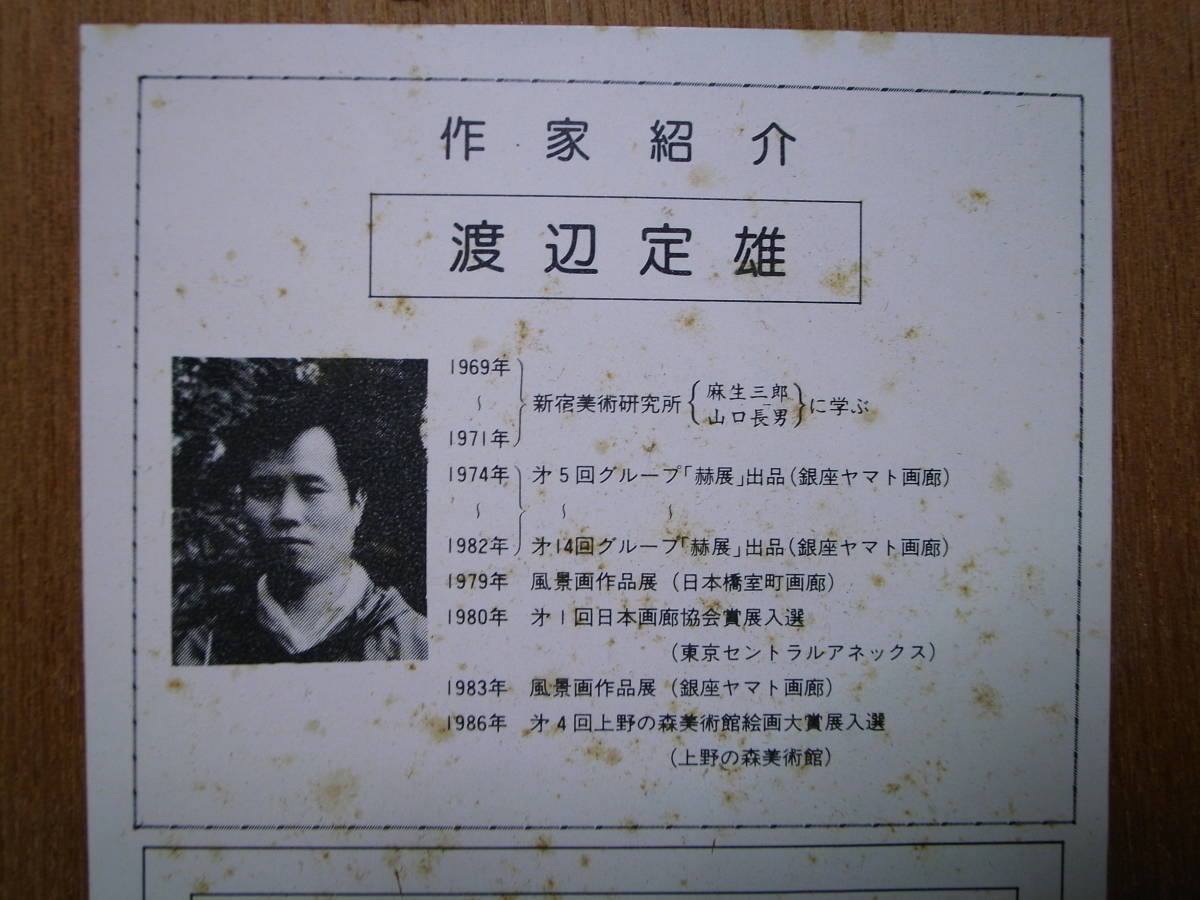 作家紹介
渡辺定雄
1969年
〜
1971年
新宿美術研究所{麻生三郎
山口長男}に学ぶ
1974年 㐧5回グループ「赫展」出品(銀座ヤマト画廊)
〜 〜 〜
1982年 㐧14回グループ「赫展」出品(銀座ヤマト画廊)
1979年 風景画作品展(日本橋室町画廊)
1980年 㐧1回日本画廊協会賞展入選
(東京セントラルアネックス)
1983年 風景画作品展(銀座ヤマト画廊)
1986年 㐧4回上野の森美術館絵画大賞展入選
(上野の森美術館)